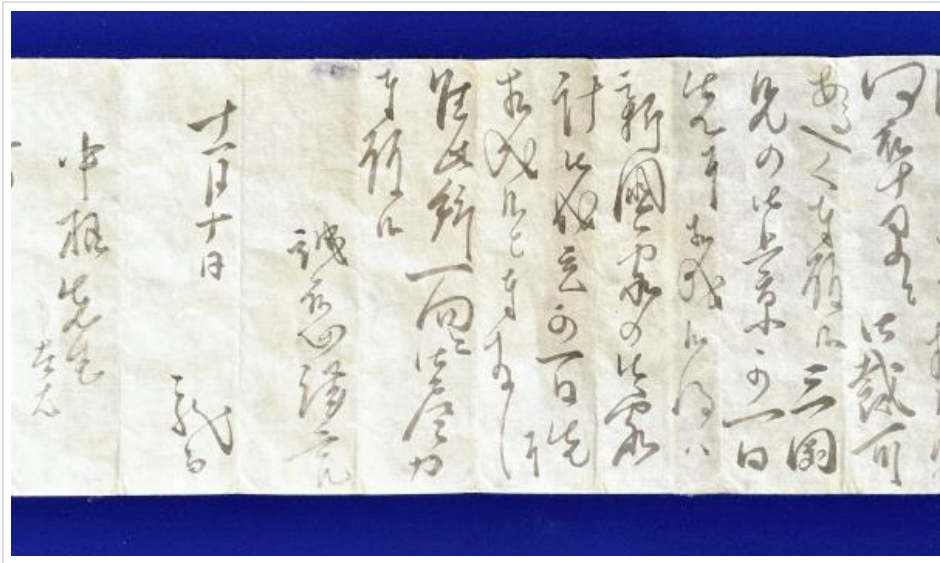 何卒早々御裁可
奉願候三岡
兄の御上京が一日
先に相成候得ハ
新國家の御家
計御成立が一日先
相成候と奉存候
唯此所一向ニ御尽力
奉願候
誠恐謹言
十一月十日
龍馬
中根先生
左右